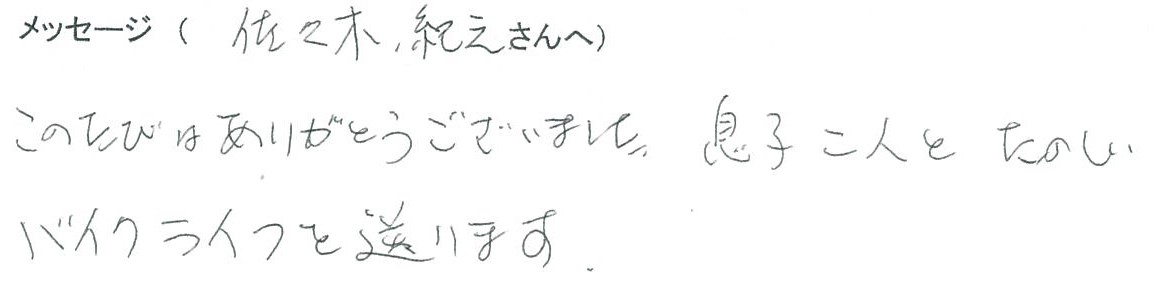 メッセージ( 佐々木, 紀之さんへ)
このたびはありがとうございました。息子二人とたのしい
バイクライフを送ります.